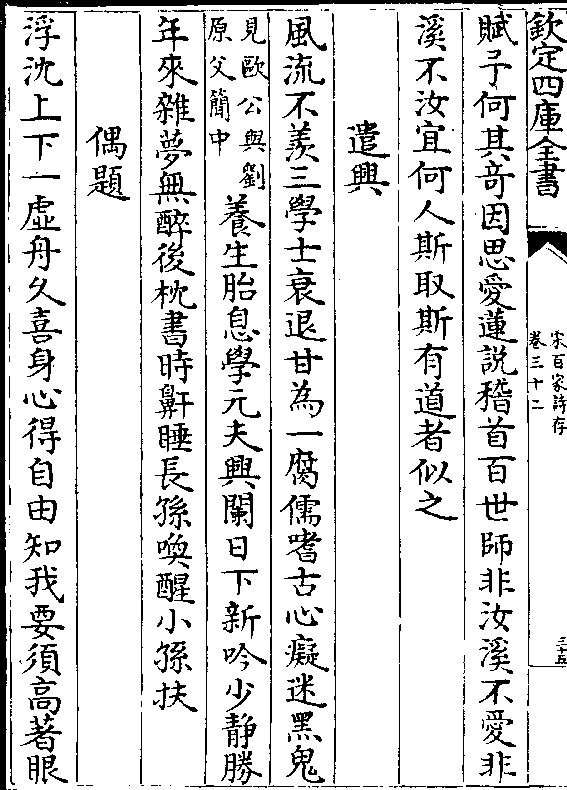 欽定四庫全書
宋百家詩存
卷三十二
三十五
賦予何其竒因思愛蓮說稽首百世師非汝溪不愛非
溪不汝宜何人斯取斯有道者似之
遣興
風流不羨三學士衰退甘為一腐儒嗜古心癡迷黑鬼
見歐公與劉
原父簡中
養生胎息學元夫興闌日下新吟少靜勝
年來雜夢無醉後枕書時鼾睡長孫喚醒小孫扶
偶題
浮沈上下一虛舟久喜身心得自由知我要須高著眼